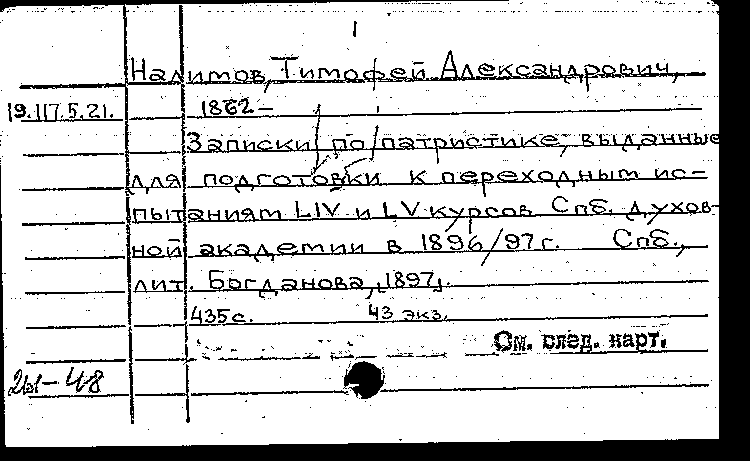 1
Налимов, Тимофей Александрович,
19.117.5.21. 1862-
Записки по патристике, выданные
для подготовки к переходным ис-
пытаниям LIV и LV курсов Спб. духов-
ной академии в 1896/97 г. Спб.,
лит. Богданова, [1897].
435 с. 43 экз.
См. след. карт.